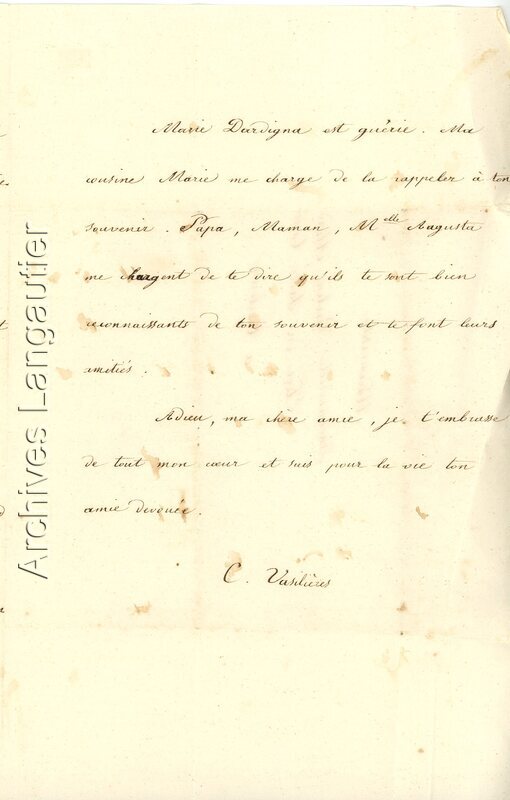 Marie Dardigna est guérie. Ma
cousine Marie me charge de la rappeler à ton
souvenir. Papa, Maman, Melle Augusta
me chargent de te dire qu'ils te sont bien
reconnaissants de ton souvenir et te font leurs
amitiés.
Adieu, ma chère amie, je t'embrasse
de tout mon cœur et suis pour la vie ton
amie dévouée.
C. Vasilières
Archives Langautier